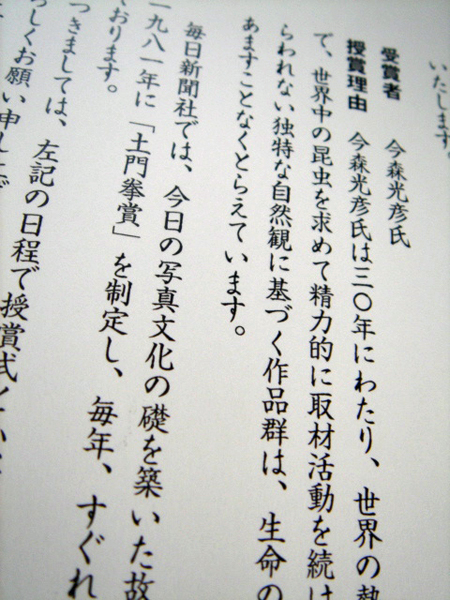 いたします。
受賞者　今森光彦氏
授賞理由　今森光彦氏は三〇年にわたり、世界の熱
て、世界中の昆虫を求めて精力的に取材活動を続け
らわれない独特な自然観に基づく作品群は、生命の
あますことなくとらえています。
毎日新聞社では、今日の写真文化の礎を築いた故
一九八一年に「土門拳賞」を制定し、毎年、すぐれ
ております。
つきましては、左記の日程で授賞式を
ろしくお願い申し上げ